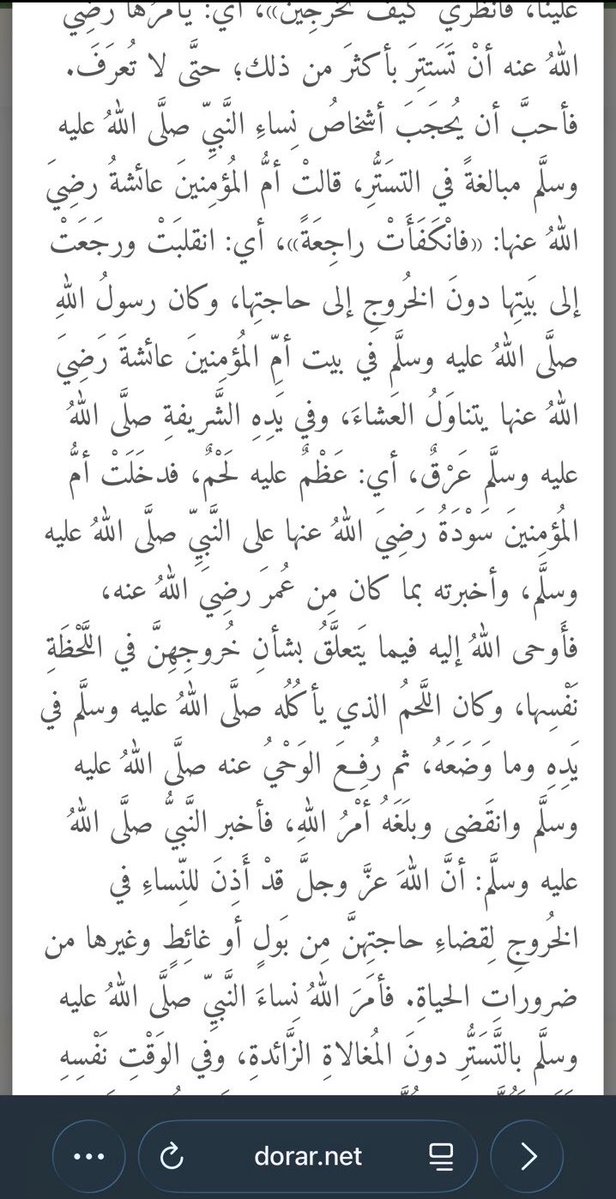 علينا، فانظري كيف تخرجين»، أي: يأمرها رضِي
اللهُ عنه أنْ تَستتِرَ بأكثرَ من ذلك؛ حتَّى لا تُعرَفَ.
فأحبَّ أن يُحجَبَ أشخاصُ نِساءِ النَّبيِّ صلَّى اللهُ عليه
وسلَّم مبالغةً في التستُّرِ، قالتْ أمُّ المُؤمِنينَ عائشةُ رضِيَ
اللهُ عنها: «فانْكَفَأَتْ راجِعَةً»، أي: انقلبَتْ ورجَعَتْ
إلى بَيتِها دونَ الخُروجِ إلى حاجتِها، وكان رسولُ اللهِ
صلَّى اللهُ عليه وسلَّم في بيت أمِّ المُؤمِنينَ عائشةَ رَضِيَ
اللهُ عنها يتناوَلُ العَشاءَ، وفي يَدِهِ الشَّريفةِ صلَّى اللهُ
عليه وسلَّم عَرْقٌ، أي: عَظْمٌ عليه لَحْمٌ، فدخَلَتْ أمُّ
المُؤمِنينَ سَوْدَةُ رَضِيَ اللهُ عنها على النَّبيِّ صلَّى اللهُ عليه
وسلَّم، وأخبرته بما كان مِن عُمرَ رضِيَ اللهُ عنه،
فأَوحى اللهُ إليه فيما يَتعلَّقُ بشأنِ خُروجِهِنَّ في اللَّحْظَةِ
نَفْسِها، وكان اللَّحمُ الذي يأكُلُه صلَّى اللهُ عليه وسلَّم في
يَدِهِ وما وَضَعَهُ، ثم رُفِعَ الوَحْيُ عنه صلَّى اللهُ عليه
وسلَّم وانقَضى وبلَغَهُ أمْرُ اللهِ، فأخبر النَّبيُّ صلَّى اللهُ
عليه وسلَّم: أنَّ اللهَ عزَّ وجلَّ قدْ أَذِنَ للنِّساءِ في
الخُروجِ لِقضاءِ حاجتِهنَّ مِن بَولٍ أو غائِطٍ وغيرها من
ضروراتِ الحياةِ. فأمَرَ اللهُ نِساءَ النَّبيِّ صلَّى اللهُ عليه
وسلَّم بالتَّستُّرِ دونَ المُغالاةِ الزَّائدةِ، وفي الوَقْتِ نَفْسِهِ
dorar.net